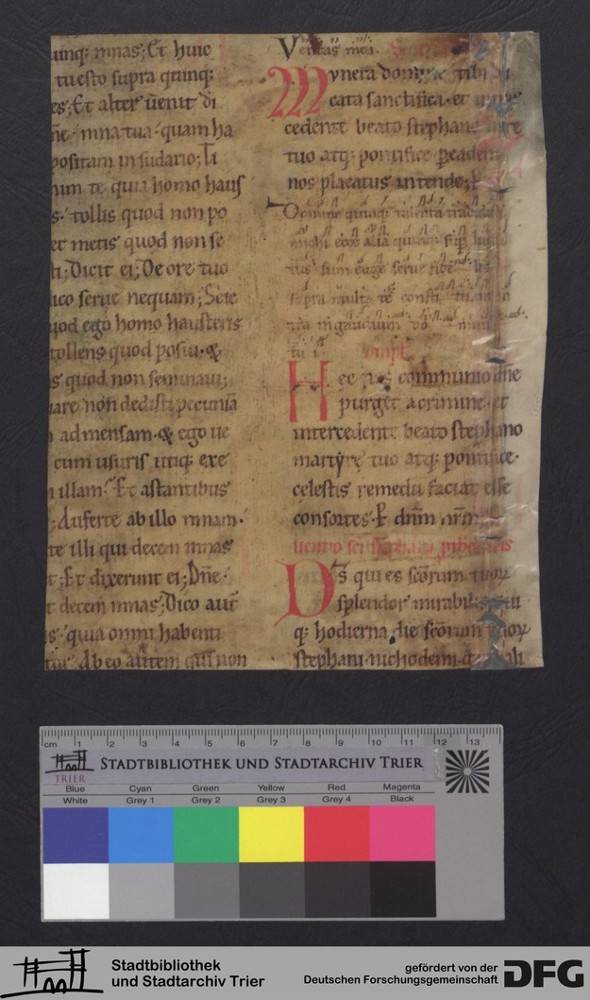 unq; mnas; Et huic
tu esto supra quinq;
es; Et alter uenit di
ne mna tua quam ha
positam in sudario; Ti
te quia homo haus
s tollis quod non po
et metis quod non se
ti; Dicit ei; De ore tuo
ico serue nequam; Scie
uod ego homo hausterus
tollens quod posui &
s quod non seminaui;
are non dedisti pecunia
ad mensam & ego ue
cum usuris utiq; exe
illam; Et astantibus
; Auferte ab illo mnam
te illi qui decem mnas
t; Et dixerunt ei; Dñe
t decem mnas; Dico aut
s quia omni habenti
tur Ab eo autem qui non
Veritas mea.
Munera domine tibi
cata sanctifica et
cedente beato stephano
tuo atq; pontifice p eadem
nos placatus intende;
Domine quinq; talenta tradidisti
michi ecce alia quinq;
sum euge serue
supra multa te consti
in gaudium
tui
Hec nos communio dñe
purget a crimine et
intercedente beato stephano
martyre tuo atq; pontifice
celestis remedii faciat esse
consortes. P dñm nrm
uentio sci stephani
Ds qui es scorum tuoꝝ
splendor mirabilis
q; hodierna die scorum tuoꝝ
stephani nichodemi
cm 1 2 3 4 5 6 7 8 9 10 11 12 13
TRIER
STADTBIBLIOTHEK UND STADTARCHIV TRIER
Blue Cyan Green Yellow Red Magenta
White Grey 1 Grey 2 Grey 3 Grey 4 Black
Stadtbibliothek
und Stadtarchiv Trier
gefördert von der
Deutschen Forschungsgemeinschaft
DFG